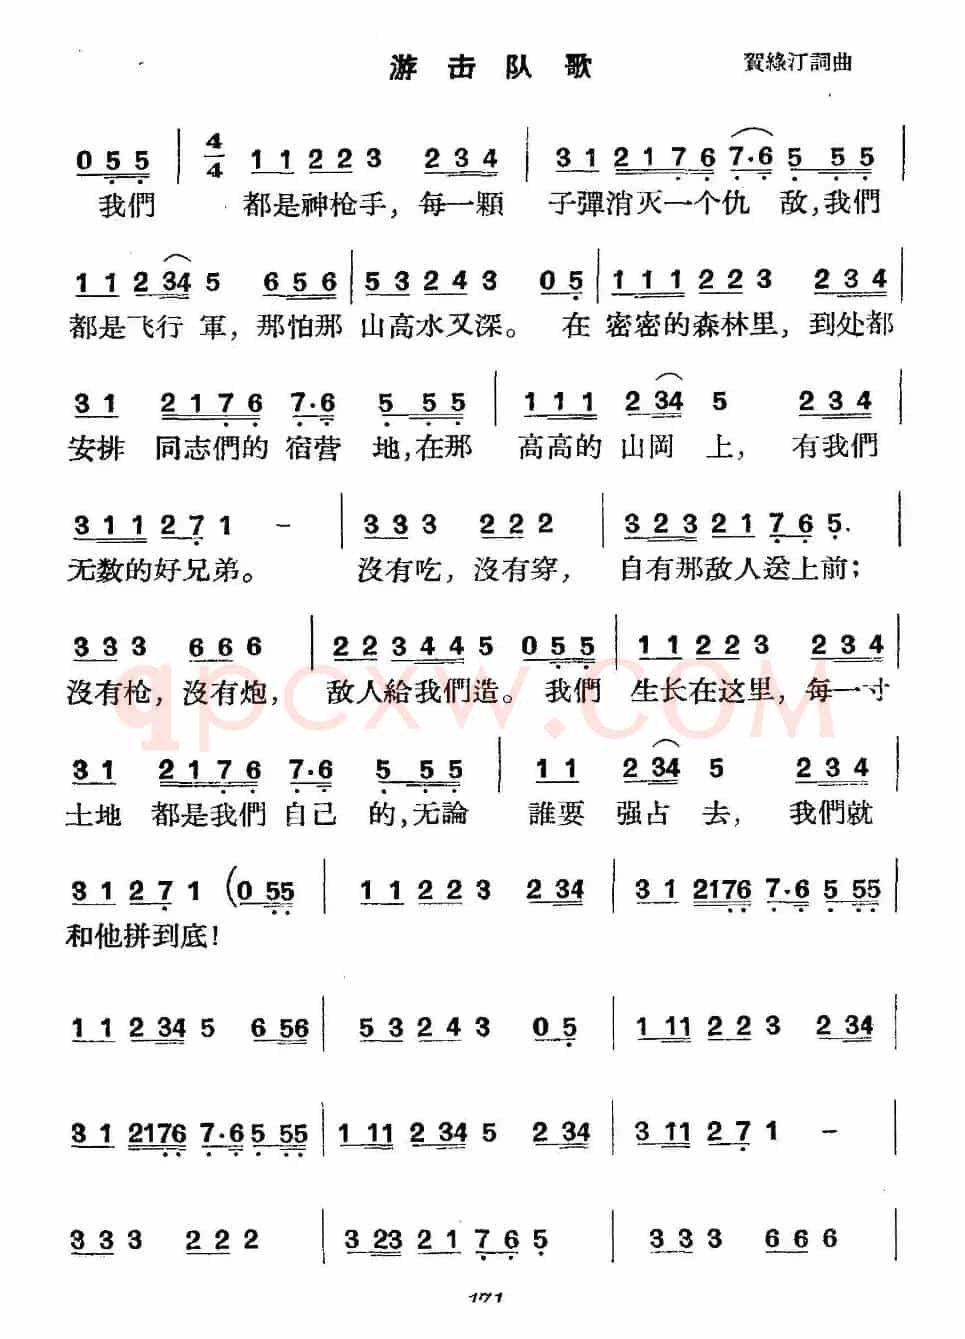 游击队歌 賀綠汀詞曲
0 5 5 | 4/4 1 1 2 2 3 2 3 4 | 3 1 2 1 7 6 7·6 5 5 5 |
我們 都是神枪手，每一顆 子彈消灭一个仇 敌，我們
1 1 2 34 5 6 5 6 | 5 3 2 4 3 0 5 | 1 1 1 2 2 3 2 3 4 |
都是飞行 軍，那怕那 山高水又深。 在 密密的森林里，到处都
3 1 2 1 7 6 7·6 5 5 5 | 1 1 1 2 34 5 2 3 4 |
安排 同志們的 宿营 地，在那 高高的 山岡 上， 有我們
3 1 1 2 7 1 – | 3 3 3 2 2 2 | 3 2 3 2 1 7 6 5. |
无数的好兄弟。 沒有吃，沒有穿， 自有那敌人送上前；
3 3 3 6 6 6 | 2 2 3 4 4 5 0 5 5 | 1 1 2 2 3 2 3 4 |
沒有枪，沒有炮， 敌人給我們造。 我們 生长在这里，每一寸
3 1 2 1 7 6 7·6 5 5 5 | 1 1 2 34 5 2 3 4 |
土地 都是我們 自己 的，无論 誰要 强占 去， 我們就
3 1 2 7 1 (0 55 | 1 1 2 2 3 2 34 | 3 1 2176 7·6 5 55 |
和他拼到底！
1 1 2 34 5 6 56 | 5 3 2 4 3 0 5 | 1 11 2 2 3 2 34 |
3 1 2176 7·6 5 55 | 1 11 2 34 5 2 34 | 3 11 2 7 1 – |
3 3 3 2 2 2 | 3 23 2 1 7 6 5 | 3 3 3 6 6 6 |
171
qpcxw.COM